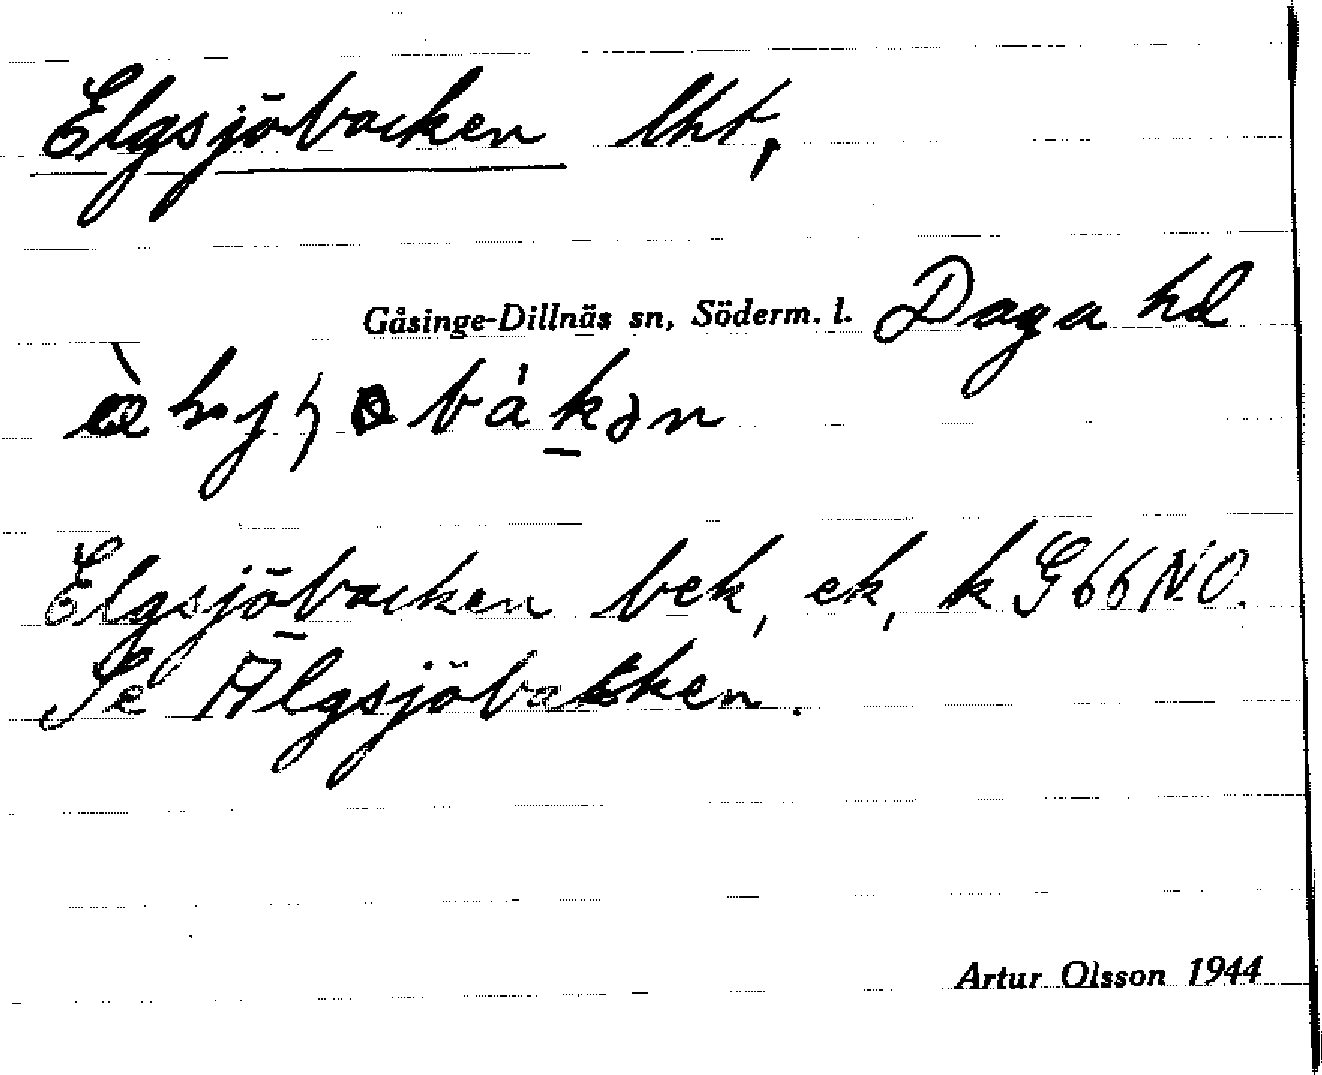 Elgsjöbacken lht,
Gåsinge-Dillnäs sn, Söderm. l. Daga hd
Elgsjöbacken bek, ek, k G 66 NO.
Se Älgsjöbacken.
Artur Olsson 1944